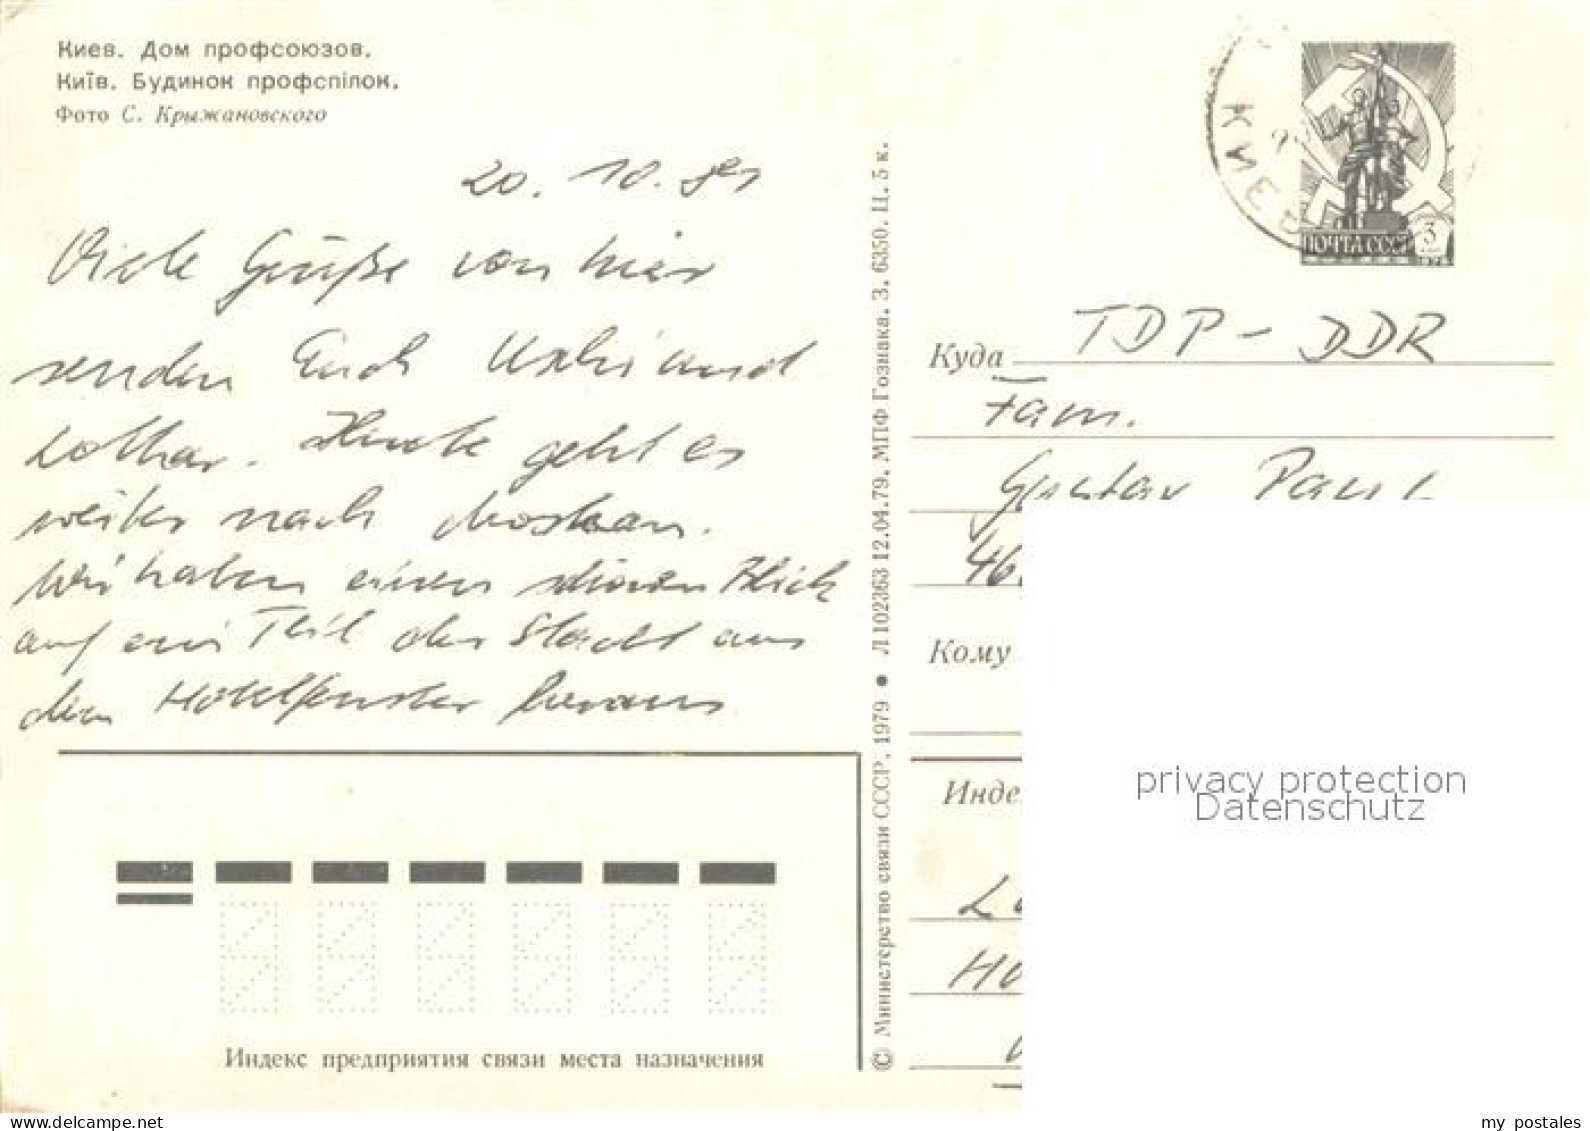 Киев. Дом профсоюзов.
Київ. Будинок профспілок.
Фото С. Крыжановского
20. 10. 81
Viele Grüße von hier
senden Euch Uschi und
Lothar. Heute geht es
weiter nach Moskau.
Wir haben einen schönen Blick
auf ein Teil der Stadt aus
dem Hotelfenster heraus
Индекс предприятия связи места назначения
© Министерство связи СССР, 1979 • Л 102363 12.04.79. МПФ Гознака. З. 6350. Ц. 5 к.
КИЕВ
ПОЧТА СССР 3
1976
Куда TDP - DDR
Fam.
Gustav Paul
46
Кому
Инде
privacy protection
Datenschutz
my postales